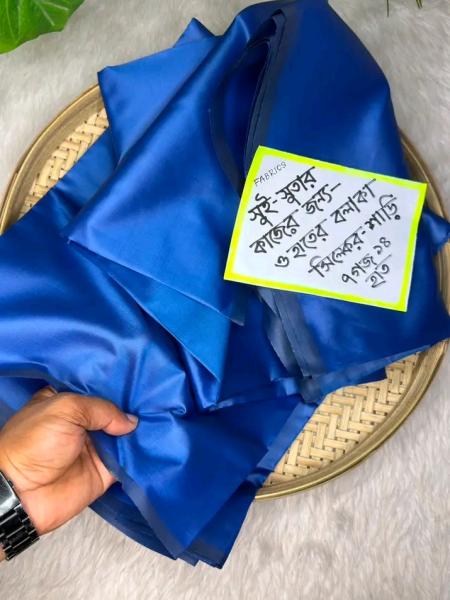 FABRICS
সুই-সুতার
কাজের জন্য-
ও হাতের বলাকা
সিল্কের-শাড়ি
৭গজ ১৪
হাত